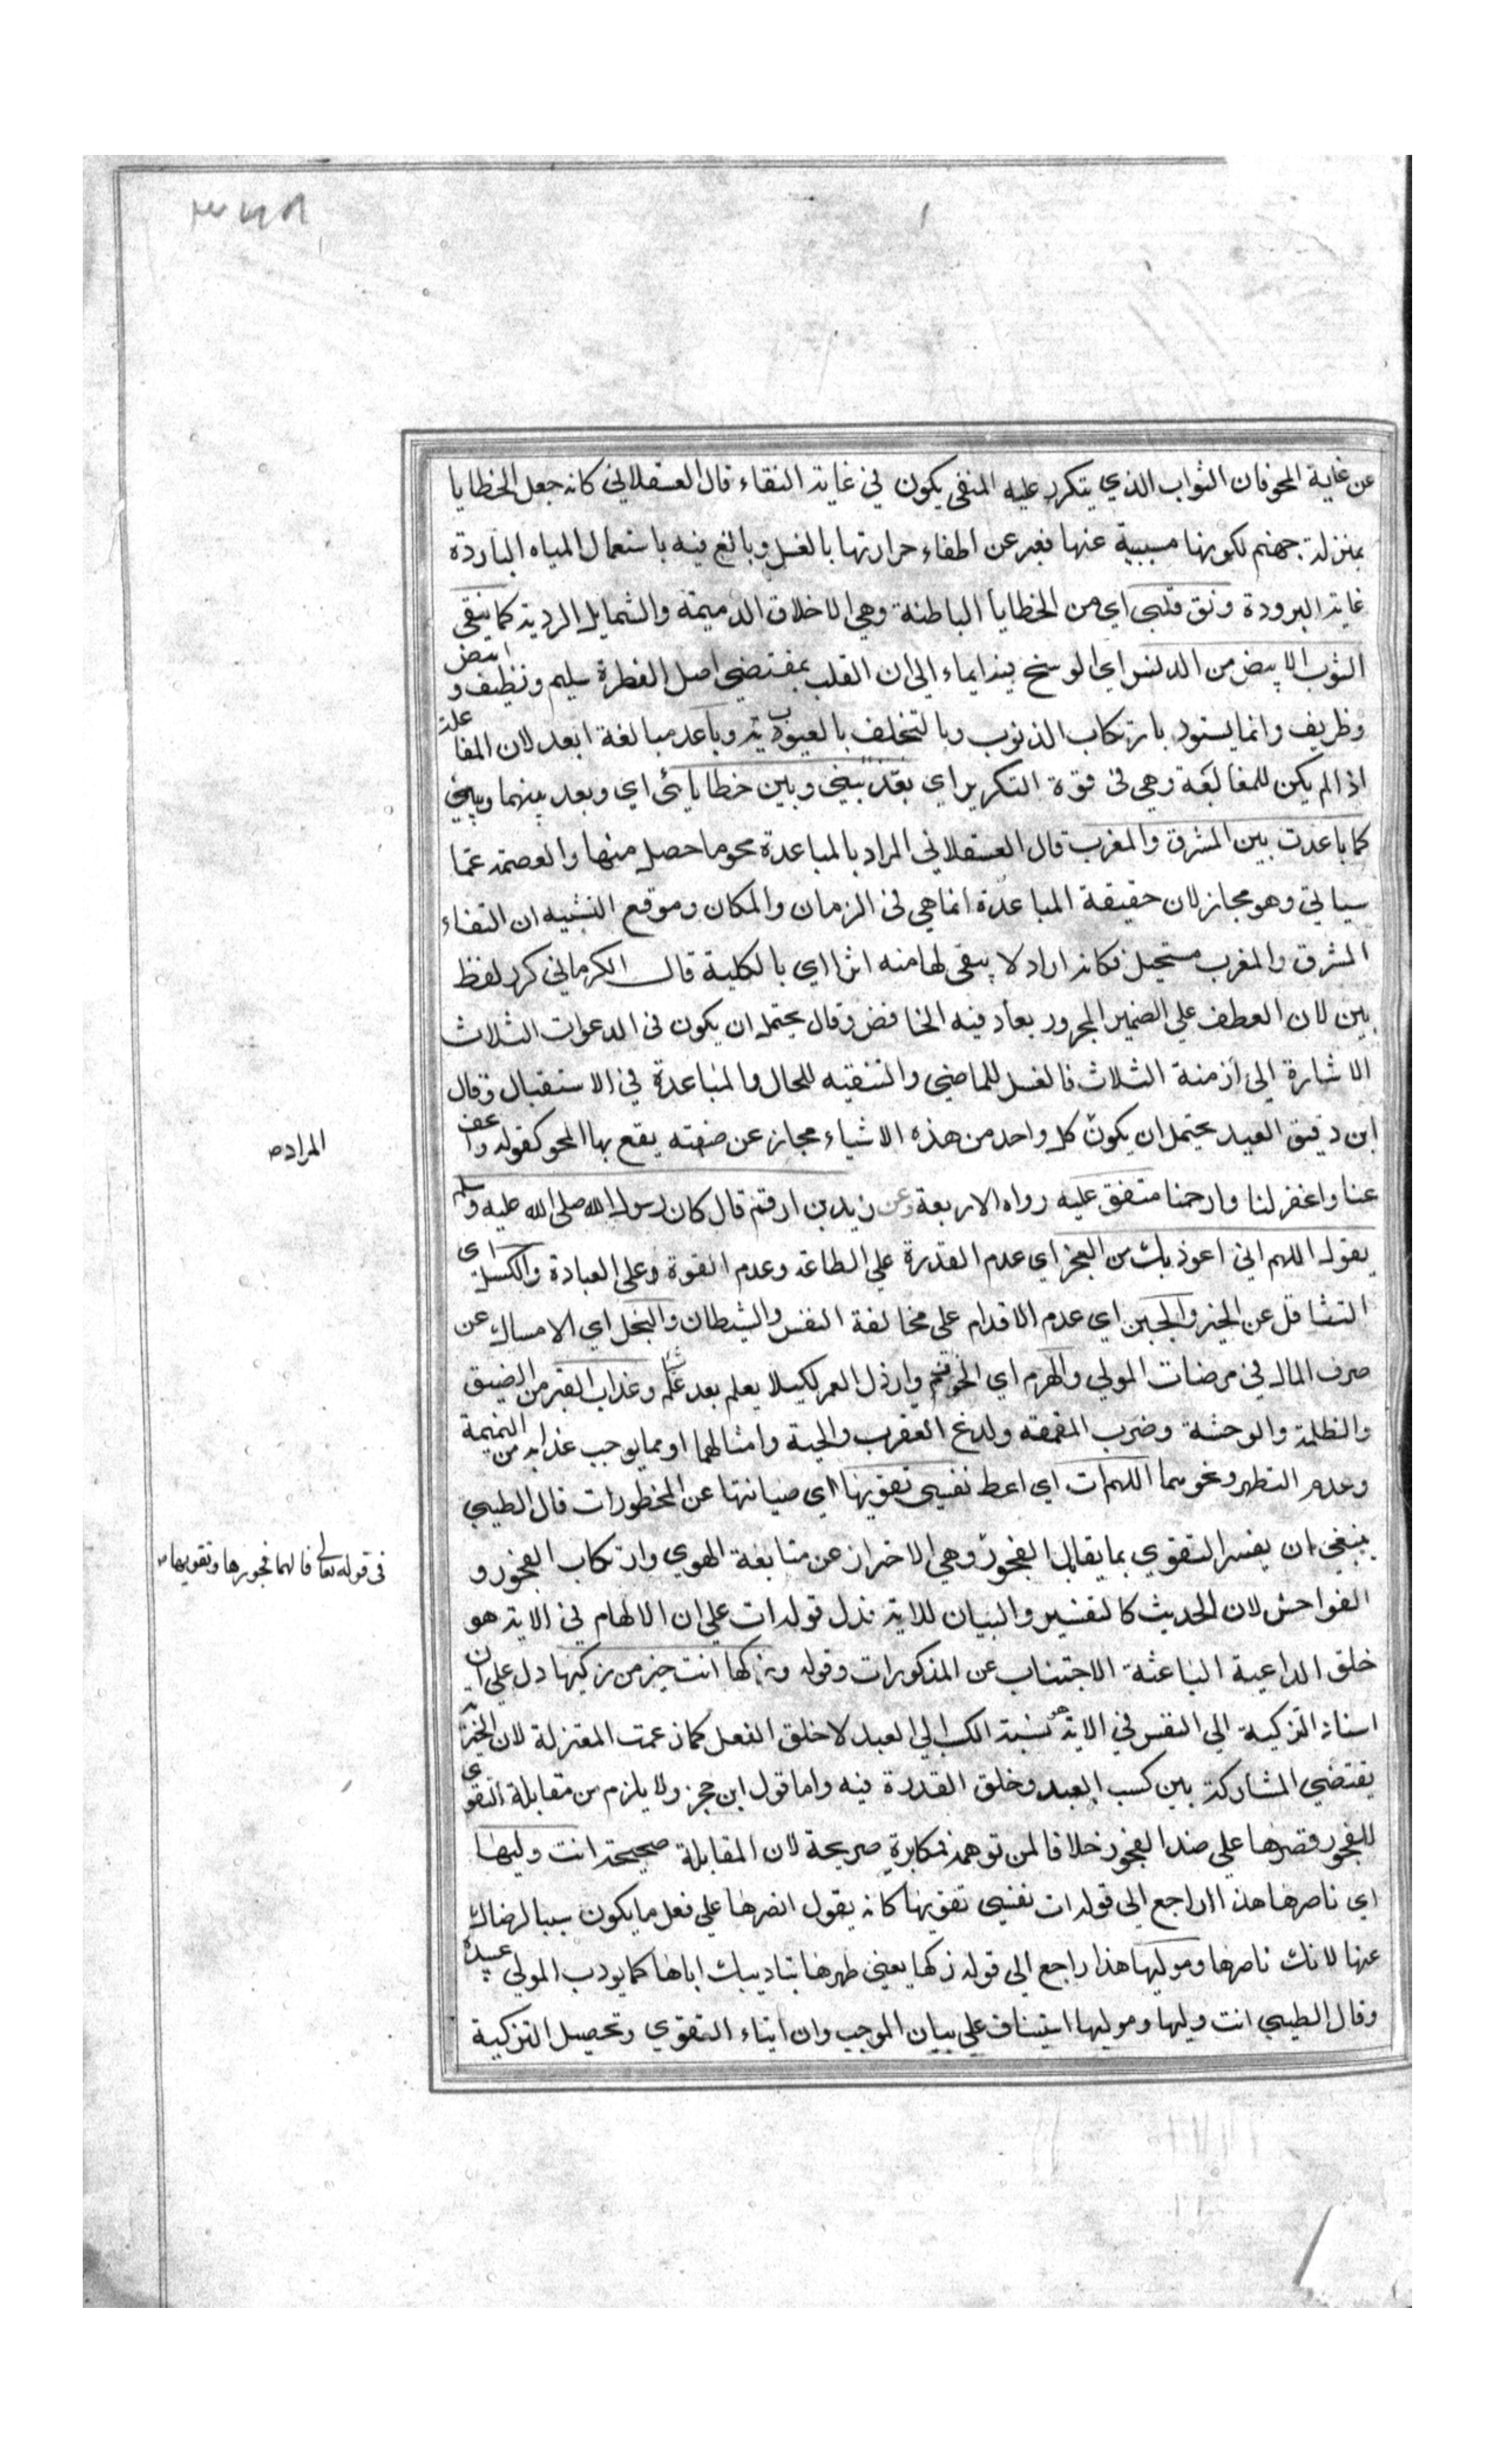 عن غاية المحو فان الثواب الذي يتكرر عليه المنقى يكون في غاية النقاء قال العسقلاني كانه جعل الخطايا
بمنزلة جهنم لكونها مسببية عنها فعبر عن اطفاء حرارتها بالغسل وبالغ فيه باستعمال المياه الباردة
غاية البرودة ونق قلبي اي من الخطايا الباطنة وهي الاخلاق الذميمة والشمايل الردية كما ينقى
الثوب الابيض من الدنس اي الوسخ فيه ايماء الى ان القلب بمقتضى اصل الفطرة سليم ونظيف و ابيض
وظريف وانما يسود بارتكاب الذنوب وبالتخلف بالعيوب وباعد مبالغة ابعد لان المفاعلة
اذا لم يكن للمغالبة وهي في قوة التكرير اي بعد بيني وبين خطايائى اي وبعد بينهما وبيني
كما باعدت بين المشرق والمغرب قال العسقلاني المراد بالمباعدة محو ما حصل منها والعصمة عما
سياتي وهو مجاز لان حقيقة المباعدة انما هي في الزمان والمكان وموقع التشبيه ان التقاء
المشرق والمغرب مستحيل فكانه اراد لا يبقى لها منه اثرا اي بالكلية قال الكرماني كرر لفظ
بين لان العطف على الضمير المجرور يعاد فيه الخافض وقال يحتمل ان يكون في الدعوات الثلاث
الاشارة الى ازمنة الثلاث فالغسل للماضي والتنقيه للحال والمباعدة في الاستقبال وقال
ابن دقيق العيد يحتمل ان يكون كل واحد من هذه الاشياء مجاز عن صفته يقع بها المحو كقوله واعف
المراد
عنا واغفر لنا وارحمنا متفق عليه رواه الاربعة وعن زيد بن ارقم قال كان رسول الله صلى الله عليه وسلم
يقول اللهم اني اعوذ بك من العجز اي عدم القدرة على الطاعة وعدم القوة وعلى العبادة والكسل اى
التثاقل عن الخير والجبن اي عدم الاقدام على مخالفة النفس والشيطان والبخل اي الامساك عن
صرف المال في مرضات المولي والهرم اي الخرف وارذل العمر لكيلا يعلم بعد علم شيا وعذاب القبر من الضيق
والظلمة والوحشة وضرب المقمعة ولدغ العقرب والحية وامثالهما او مما يوجب عذابه من النميمة
وعدم التطهر ونحوهما اللهم ات اي اعط نفسي تقويها اي صيانتها عن المحظورات قال الطيبي
ينبغي ان يفسر التقوي بما يقابل الفجور وهي الاحتراز عن متابعة الهوي وارتكاب الفجور و
في قوله تعالى فالهما فجورها وتقويها
الفواحش لان الحديث كالتفسير والبيان للاية فدل قوله ات على ان الالهام في الاية هو
خلق الداعية الباعثة الاجتناب عن المذكورات وقوله وزكها انت خير من زكيها دل على ان
اسناد التزكية الي النفس في الاية هو نسبة الكسب الي العبد لا خلق الفعل كما زعمت المعتزلة لان الخيرية
يقتضي المشاركة بين كسب العبد وخلق القدرة فيه واما قول ابن حجر ولا يلزم من مقابلة التقوى
للفجور قصرها على ضد الفجور خلافا لمن توهمه فمكابرة صريحة لان المقابلة صحيحة انت وليها
اي ناصرها هذا راجع الي قوله ات نفسي تقويها كانه يقول انصرها علي فعل ما يكون سببا لرضاك
عنها لانك ناصرها وموليها هذا راجع الى قوله زكها يعني طهرها بتاديبك اياها كما يودب المولي عبيده
وقال الطيبي انت وليها وموليها استيناف على بيان الموجب وان ايتاء التقوي وتحصيل التزكية